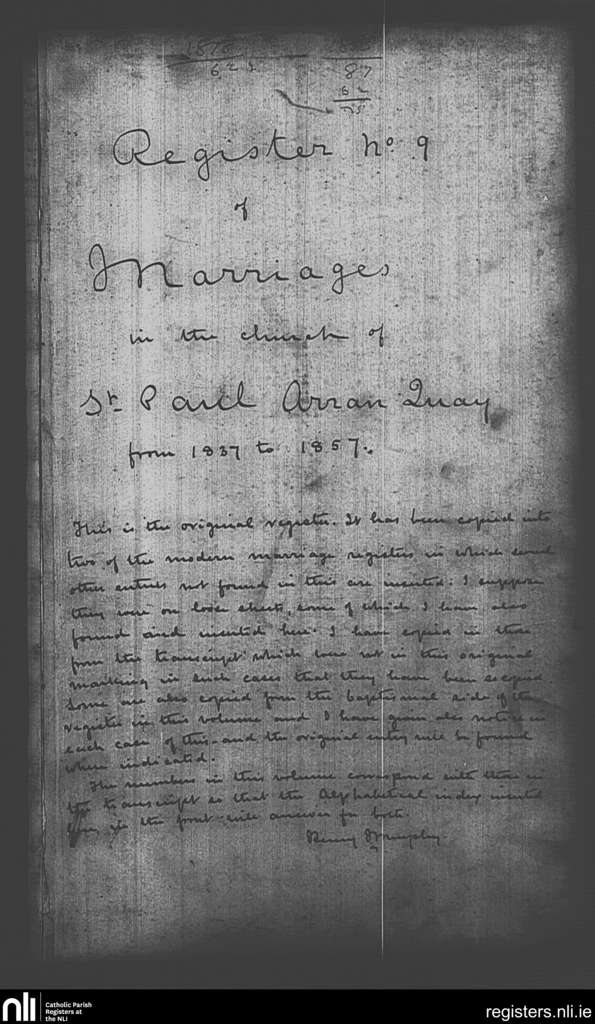 624
87
62
25
Register No 9
of
Marriages
in the church of
St Paul Arran Quay
from 1837 to 1857.
This is the original register. It has been copied into
two of the modern marriage registers in which several
other entries not found in this are inserted: I suppose
they were on loose sheets, some of which I have also
found and inserted here. I have copied in those
from the transcript which were not in this original
marking in such cases that they have been so copied.
Some are also copied from the baptismal side of the
register in this volume and I have given also notice in
each case of this and the original entry will be found
where indicated.
The numbers in this volume correspond with those in
the transcript so that the Alphabetical index inserted
in the front will answer for both.
nli
Catholic Parish
Registers at
the NLI
registers.nli.ie